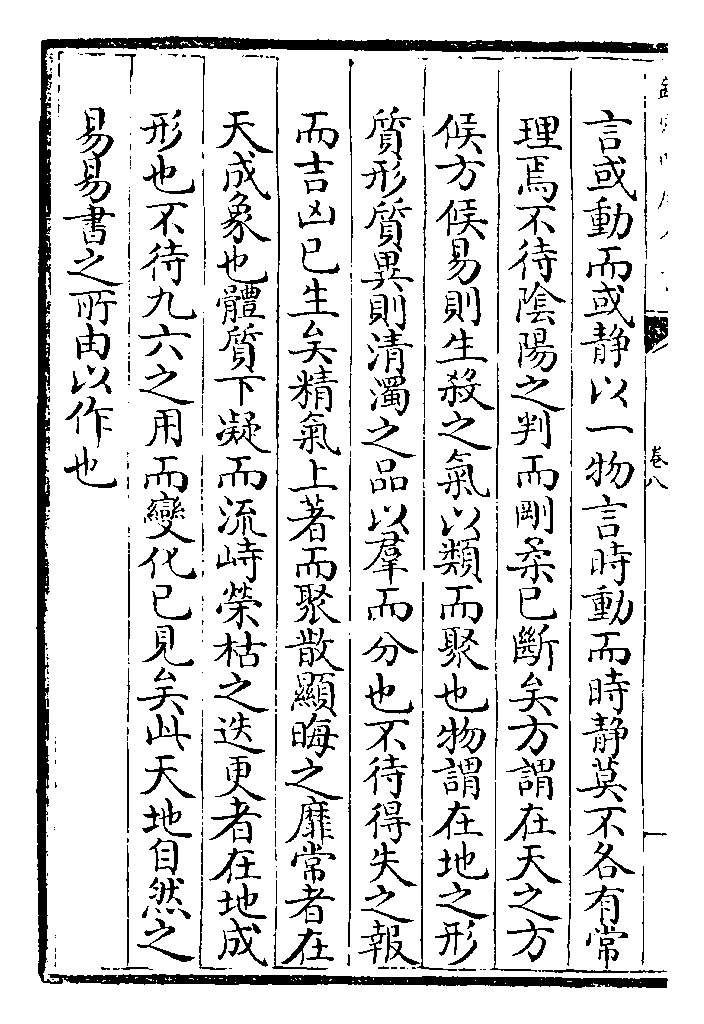 言或動而或静以一物言時動而時静莫不各有常
理焉不待陰陽之判而剛柔已斷矣方謂在天之方
候方候易則生殺之氣以類而聚也物謂在地之形
質形質異則清濁之品以羣而分也不待得失之報
而吉凶已生矣精氣上著而聚散顯晦之靡常者在
天成象也體質下凝而流峙榮枯之迭更者在地成
形也不待九六之用而變化已見矣此天地自然之
易易書之所由以作也
卷八